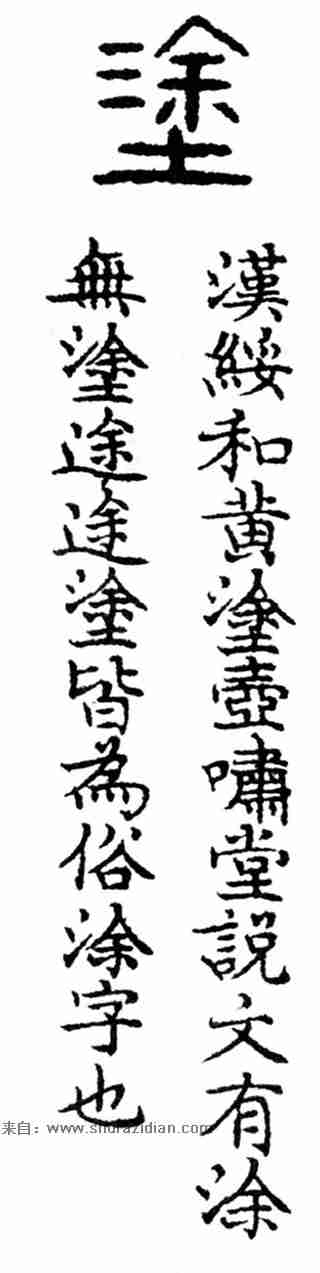 塗
漢綏和黃塗壺嘯堂說文有涂
無塗途途塗皆為俗涂字也
来自：www.shufazidian.com